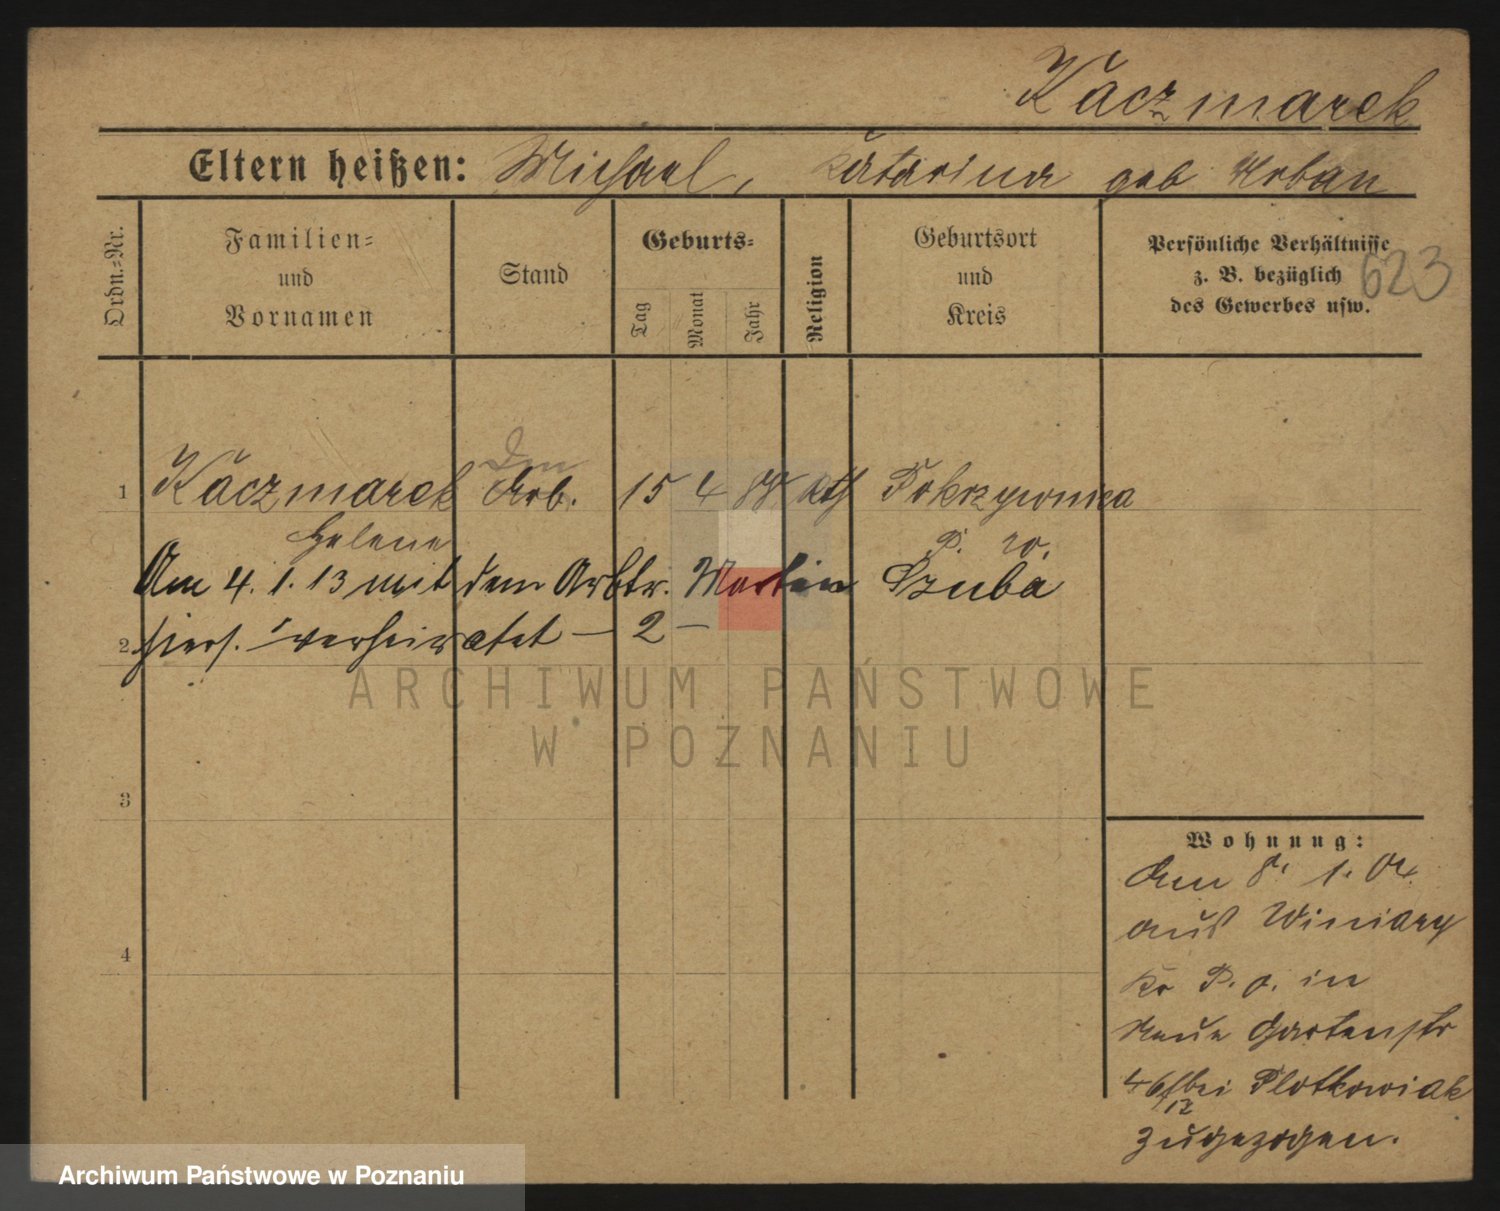 Kaczmarek
Eltern heißen: Michael, Katarina geb Urban
Ordn.=Nr.
Familien=
und
Vornamen
Stand
Geburts=
Tag
Monat
Jahr
Religion
Geburtsort
und
Kreis
Persönliche Verhältnisse
z. B. bezüglich
des Gewerbes usw.
623
1 Kaczmarek Arb. 15 4 88 kth Pokrzywnica
Helene P. W.
Am 4. 1. 13 mit dem Arbtr. Martin Szuba
2 hiers. verheiratet – 2 –
3
4
Wohnung:
Am 8. 1.
aus Winiary
Kr P. O. in
Neue Gartenstr
46 bei Plotkowiak
12
zugezogen.
ARCHIWUM PAŃSTWOWE
W POZNANIU
Archiwum Państwowe w Poznaniu